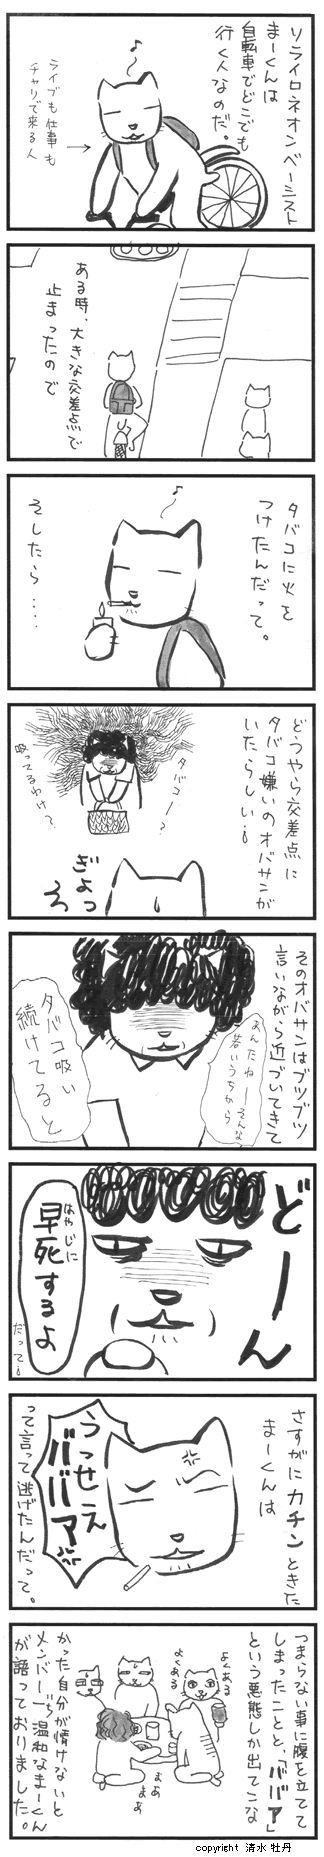 ソライロネオンベーシスト
まーくんは
自転車でどこでも
行く人なのだ。
ライブも仕事も
チャリで来る人
ある時、大きな交差点で
止まったので
タバコに火を
つけたんだって。
そしたら‥‥
どうやら交差点に
タバコ嫌いのオバサンが
いたらしい。
タバコー?
吸ってるわけ?
ぎょっ
そのオバサンはブツブツ
言いながら近づいてきて
あんたねーそんな
若いうちから
タバコ吸い
続けてると
どーん
早死するよ
はやじに
だって。
さすがにカチンときた
まーくんは
うっせえ
ババア
って言って逃げたんだって。
つまらない事に腹を立てて
しまったことと、「ババア」
という悪態しか出てこな
かった自分が情けないと
メンバー1温和なまーくん
が語っておりました。
よくある
よくある
まぁ
まぁ
copyright 清水 牡丹